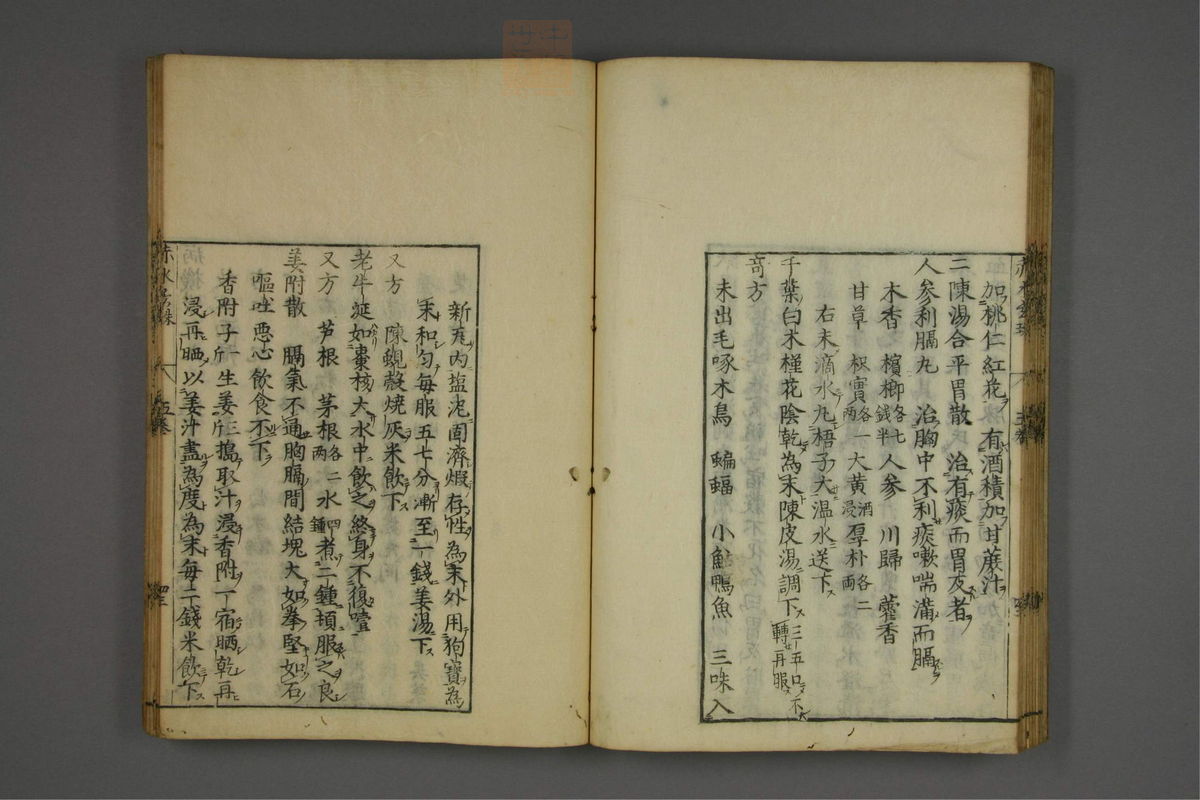 加桃仁紅花有酒積加甘蔗汁
二陳湯合平胃散治有痰而胃反者
人参利膈丸 治胸中不利痰嗽喘滿而膈
木香 檳榔各七錢半 人参 川歸 藿香
甘草 枳實各一兩 大黄酒浸 厚朴各二兩
右末滴水丸梧子大温水送下
千葉白木槿花陰乾為末陳皮湯調下三五口不轉再服
竒方
未出毛啄木鳥 蝙蝠 小鮎鴨魚 三味入
新瓦内塩泥固濟煅存性為末外用狗寳為
末和匀每服五七分漸至一錢姜湯下
又方 陳蜆殼燒灰米飲下
老牛涎如棗核大水中飲之終身不復噎
又方 芦根 茅根各二兩 水四鍾煮二鍾頓服之良
姜附散 膈氣不通胸膈間結塊大如拳堅如石
嘔吐悪心飲食不下
香附子一斤生姜三斤搗取汁浸香附一宿晒乾再
浸再晒以姜汁盡為度為末每二錢米飲下